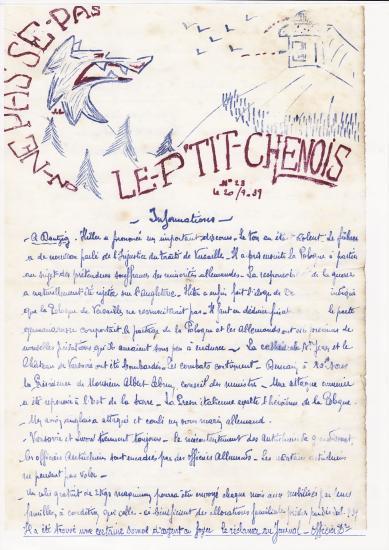 ON-N'EN-PAS-SE-PAS
LE-P'TIT-CHENOIS
N° 28
Le 20/9-39
- Informations -
- A Dantzig - Hitler a prononcé un important discours. Le ton en était violent. Le führer
a de nouveau parlé de l'injustice du traité de Versaille. Il a pris ensuite la Pologne à partie
au sujet des prétendues souffrances des minorités allemandes. La responsabilité de la guerre
a naturellement été rejetée sur l'Angleterre. Hitler a enfin fait l'éloge de
que la Pologne de Versaille ne ressusciterait pas. Il faut en déduire que le pacte
comportait le partage de la Pologne et les Allemands ont
nouvelles qu'ils auraient sous peu à endurer - La cathédrale St Jean et le
Château de Varsovie ont été bombardés. Les combats continuent. Demain à 10h sous
la Présidence de Monsieur Albert Lebrun, conseil des ministres. Une attaque ennemie
a été repoussée à l'Est de la Sarre. La Presse italienne exalte l'héroïsme de la Pologne.
- Un avion anglais a attaqué et coulé un sous marin allemand.
- Varsovie et Lwow tiennent toujours - le mécontentement des Autrichiens
les officiers Autrichiens sont encadrés par des officiers Allemands. Les
ne peuvent pas voler -
- Un colis gratuit de 2kgs maximum pourra être envoyé chaque mois aux mobilisés par leurs
familles, à condition que celles-ci bénéficient des allocations
Il a été trouvé une certaine somme d'argent au foyer la réclamer au Journal - officier